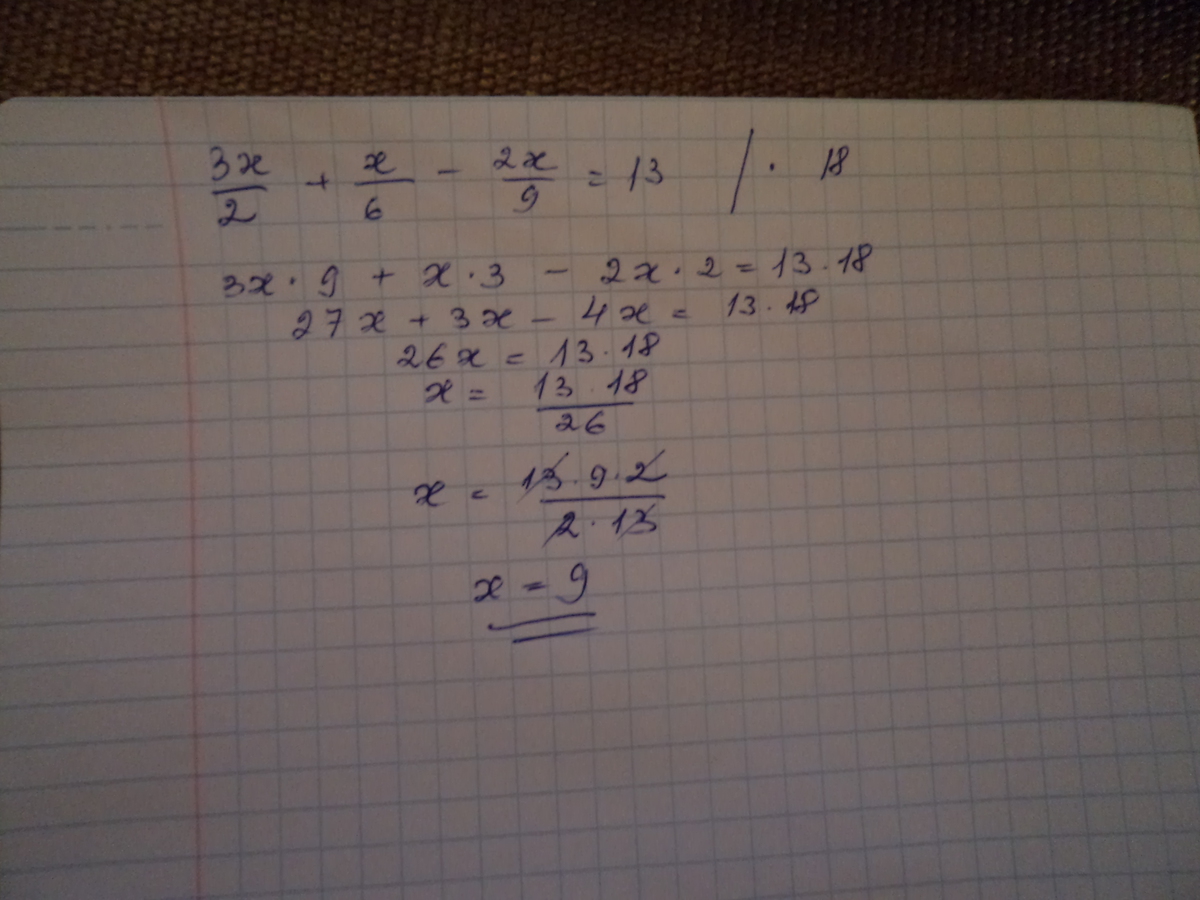 3x/2 + x/6 - 2x/9 = 13 / · 18
3x · 9 + x · 3 - 2x · 2 = 13 · 18
27x + 3x - 4x = 13 · 18
26x = 13 · 18
x = 13 · 18/26
x = 13 · 9 · 2/2 · 13
x = 9